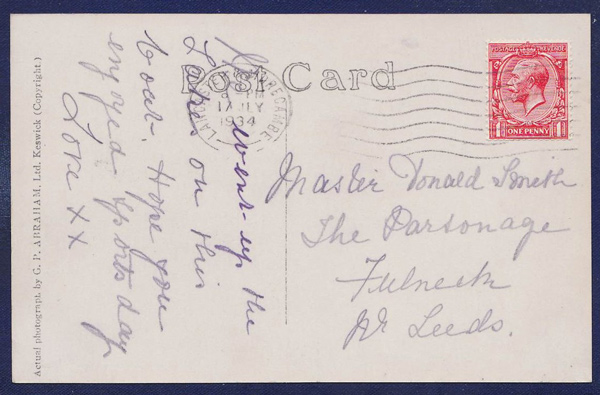 POST CARD
Actual photograph by G. P. ABRAHAM, Ltd. Keswick (Copyright.)
We went up the
Lakes on this
boat. Hope you
enjoyed sports day
Love x x
MORECAMBE
PM
17 JY
1934
POSTAGE REVENUE
ONE PENNY
Master Donald Smith
The Parsonage
Fulneck
Nr Leeds.